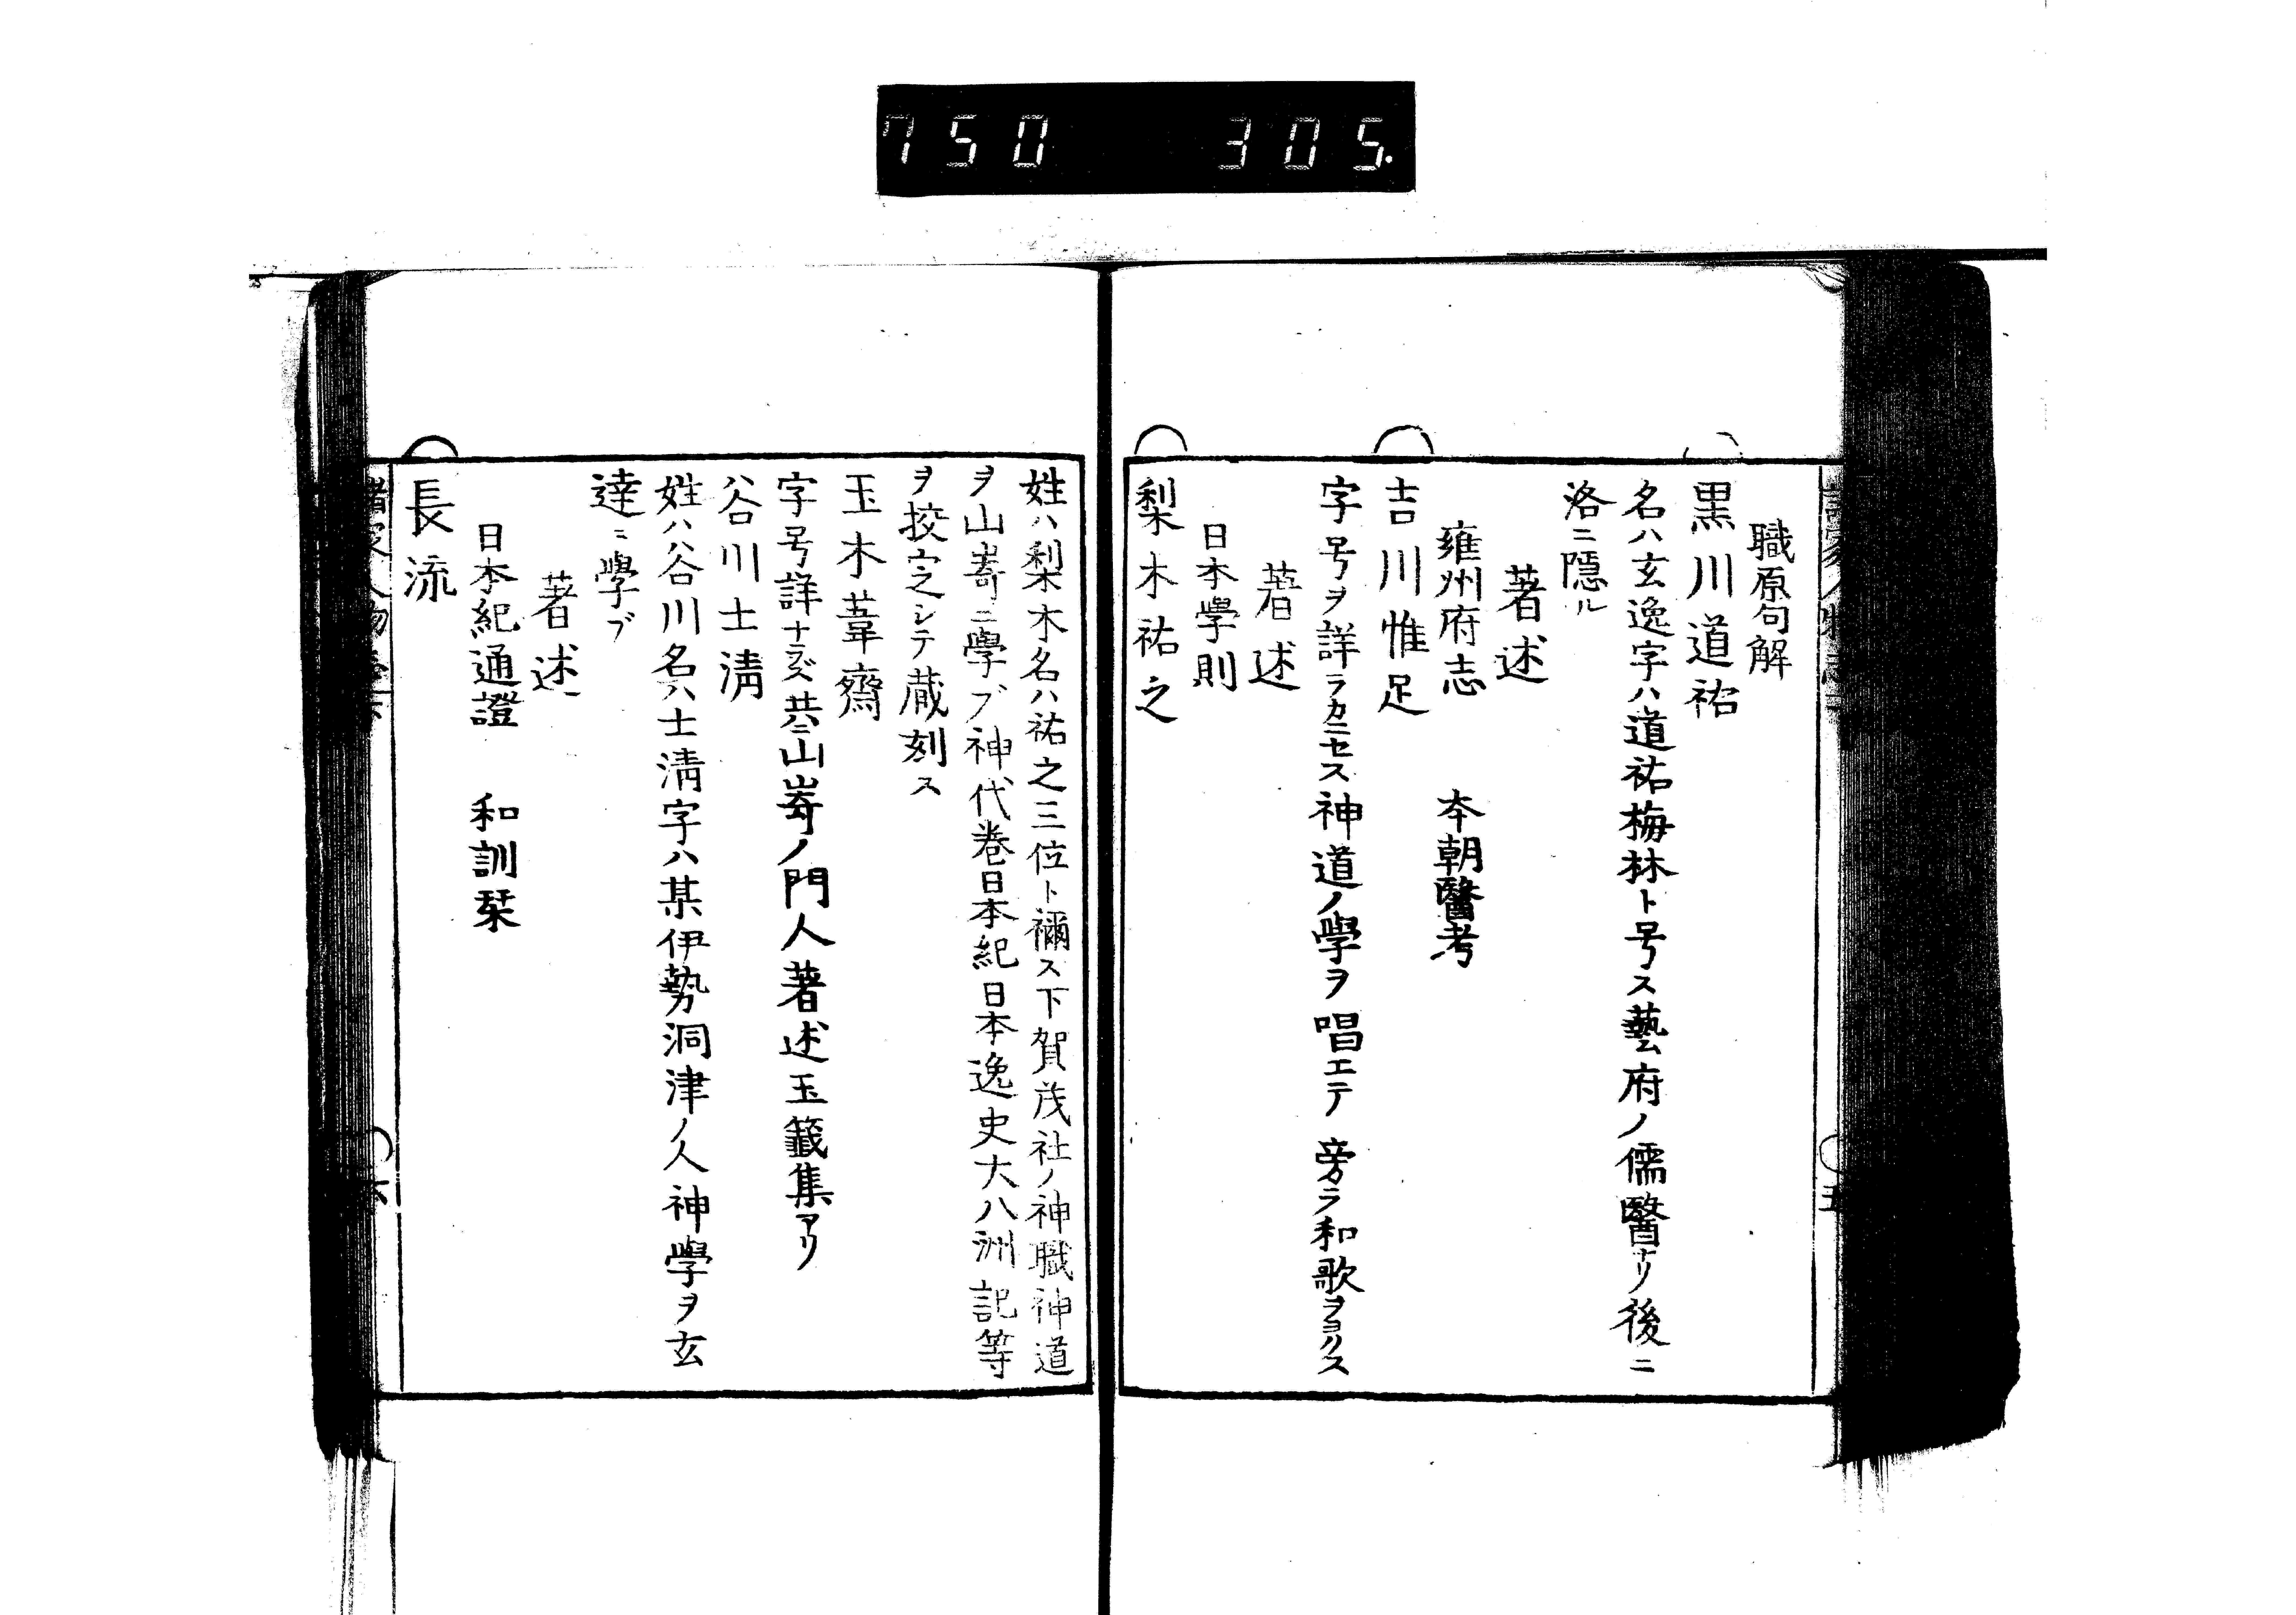 750 305.
職原句解
黒川道祐
名ハ玄逸字ハ道祐梅林ト号ス藝府ノ儒醫ナリ後ニ
洛ニ隱ル
著述
雍州府志 本朝醫考
吉川惟足
字号ヲ詳ラカニセス神道ノ學ヲ唱エテ旁ラ和歌ヲヨクス
著述
日本學則
梨木祐之
姓ハ梨木名ハ祐之三位ト禰ス下賀茂社ノ神職神道
ヲ山嵜ニ學ブ神代卷日本紀日本逸史大八洲記等
ヲ挍定シテ蔵刻ス
玉木葦齋
字号詳ナラズ共ニ山嵜ノ門人著述玉籤集アリ
谷川士淸
姓ハ谷川名ハ士淸字ハ某伊勢洞津ノ人神學ヲ玄
達ニ學ブ
著述
日本紀通證 和訓栞
長流